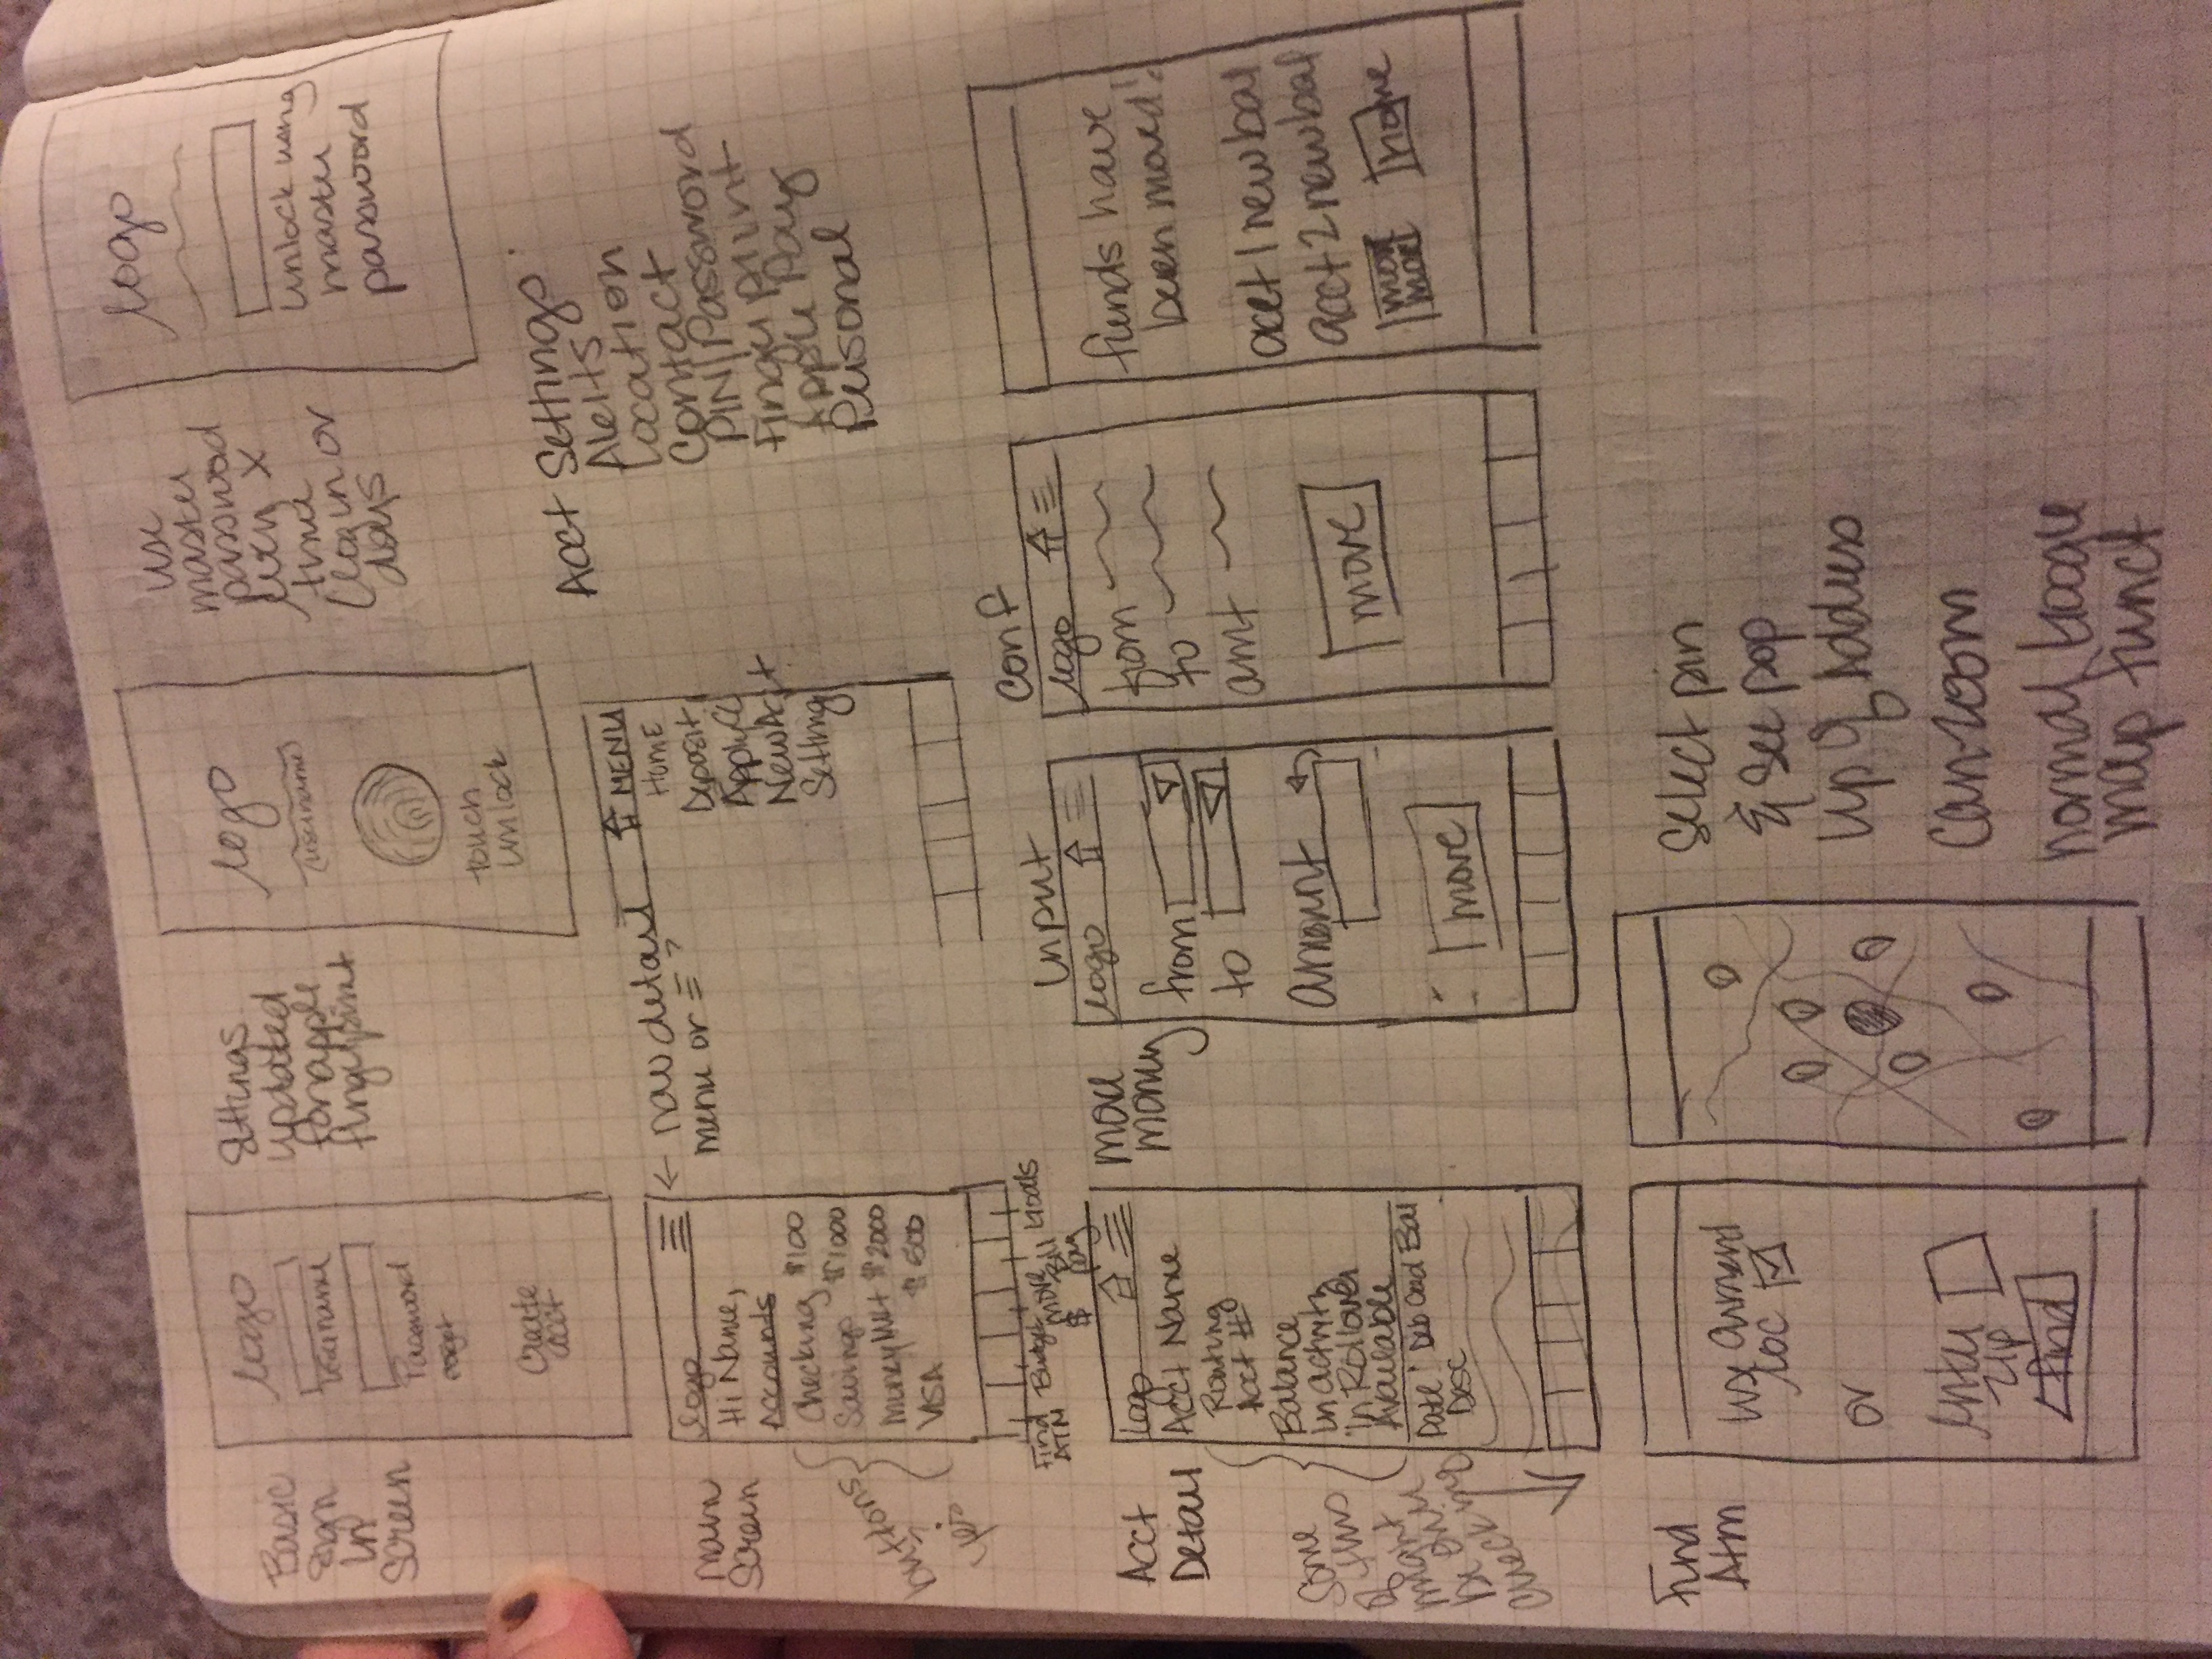 Basic
Sign
In
Screen
logo
username
Password
forgot
Create
acct
Settings
updated
for apple
fingerprint
logo
(username)
touch
unlock
use
master
password
every X
time
(login or
days
logo
unlock using
master
password
Main
Screen
buttons?
yes
logo
Hi Name,
Accounts
Checking $100
Savings $1000
Money Mkt $2000
VISA $500
Find
ATM
Budget
move
$
Bill
pay
Goals
← nav detail
menu or ≡ ?
MENU
Home
Deposit
Apply CC
New Acct
Setting
Acct Settings
Alerts
Location
Contact
PIN/Password
Fingerprint
Apple Pay
Personal
Acct
Detail
Some
of this
might
be only
checking
logo
Acct Name
Routing
Acct #
Balance
in activity
in Rollover
Available
Date Deb Cred Bal
Desc
move
money
input
logo
from
to
amount
move
conf
logo
from
to
amt
move
funds have
been moved!
acct 1 new bal
acct 2 new bal
move
more
home
Find
Atm
use current
loc
or
enter
zip
find
Select pin
& see pop
up of Address
Can zoom
normal Google
map funct